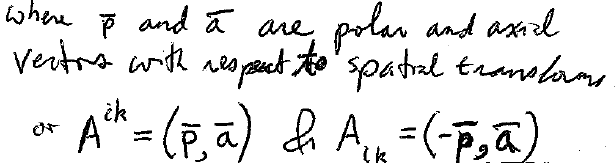 where p̄ and ā are polar and axial
vectors with respect to spatial transforms
or A^{ik} = (p̄, ā) & A_{ik} = (-p̄, ā)